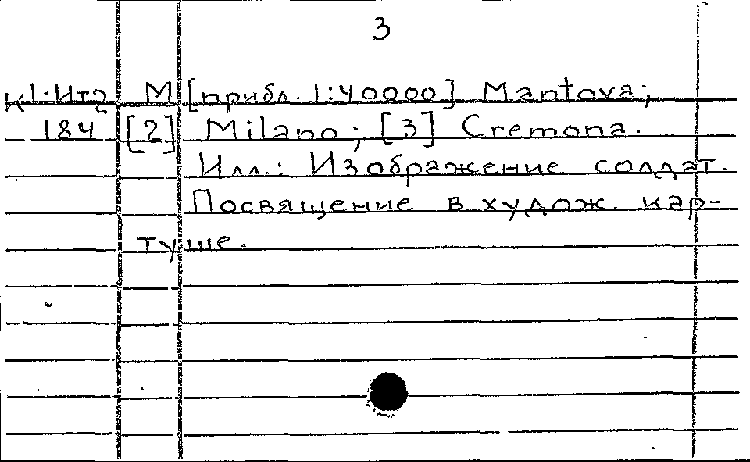 3
К1:Ит2 М [прибл. 1:40000] Mantova;
184 [2] Milano; [3] Cremona.
Илл.: Изображение солдат.
Посвящение в худож. кар-
туше.